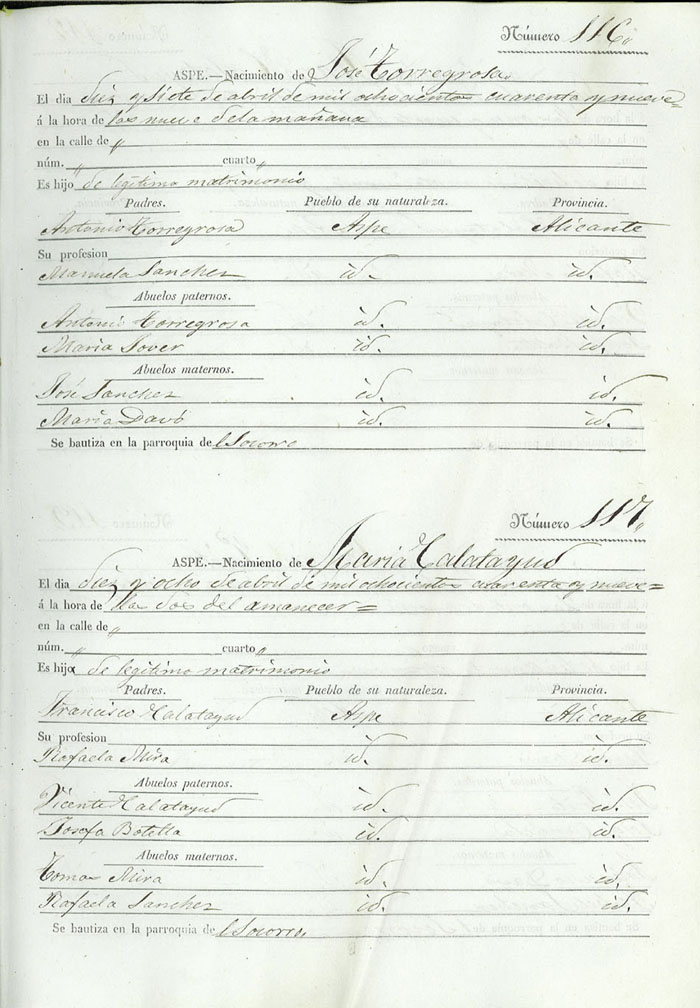 Número 116,,
ASPE.—Nacimiento de José Torregrosa
El dia diez y siete de abril de mil ochocientos cuarenta y nueve=
á la hora de las nueve de la mañana
en la calle de „
núm. „ cuarto „
Es hijo de legítimo matrimonio
Padres. Pueblo de su naturaleza. Provincia.
Antonio Torregrosa Aspe Alicante
Su profesion
Manuela Sanchez id. id.
Abuelos paternos.
Antonio Torregrosa id. id.
Maria Jover id. id.
Abuelos maternos.
José Sanchez id. id.
Maria Davó id. id.
Se bautiza en la parroquia del Socorro
Número 117,,
ASPE.—Nacimiento de Maria Calatayud
El dia diez y ocho de abril de mil ochocientos cuarenta y nueve=
á la hora de las dos del amanecer=
en la calle de „
núm. „ cuarto „
Es hija de legítimo matrimonio
Padres. Pueblo de su naturaleza. Provincia.
Francisco Calatayud Aspe Alicante
Su profesion
Rafaela Mira id. id.
Abuelos paternos.
Vicente Calatayud id. id.
Josefa Botella id. id.
Abuelos maternos.
Tomas Mira id. id.
Rafaela Sanchez id. id.
Se bautiza en la parroquia del Socorro.